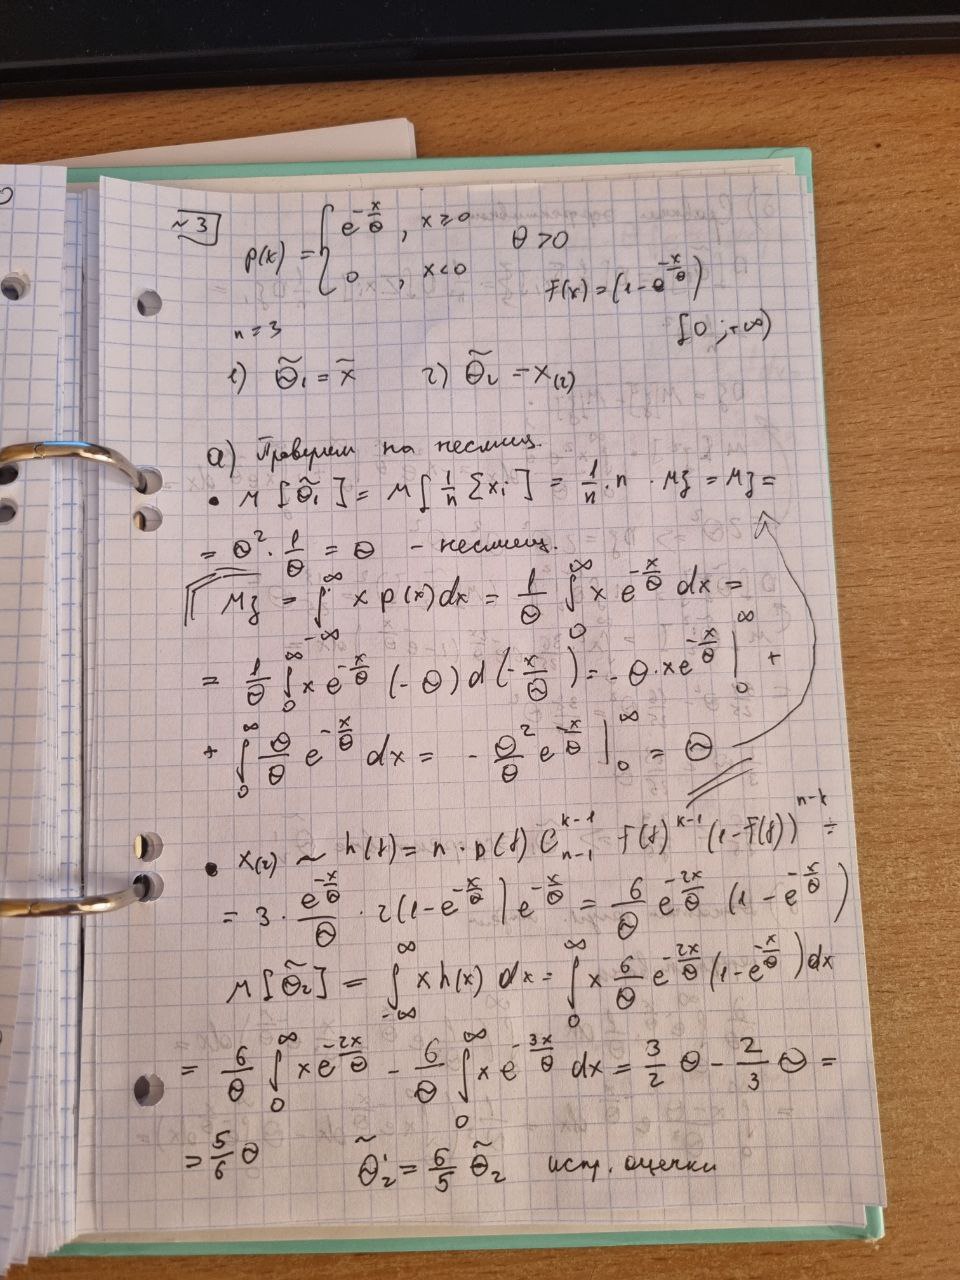 №3
p(x) = { e^{-x/θ}, x ≥ 0
0, x < 0
θ > 0
F(x) = (1 - e^{-x/θ})
[0 ; +∞)
n = 3
1) θ̃₁ = x̄ 2) θ̃₂ = x₍₂₎
а) Проверим на несмещ.
• M[θ̃₁] = M[1/n Σxᵢ] = 1/n · n · Mξ = Mξ =
= θ² · 1/θ = θ - несмещ.
Mξ = ∫_{-∞}^{∞} x p(x)dx = 1/θ ∫_0^∞ x e^{-x/θ} dx =
= 1/θ ∫_0^∞ x e^{-x/θ} (-θ) d(-x/θ) = -θ · x e^{-x/θ} |_0^∞ +
+ ∫_0^∞ θ/θ e^{-x/θ} dx = - θ²/θ e^{-x/θ} |_0^∞ = θ
• x₍₂₎ ~ h(y) = n · p(y) C_{n-1}^{k-1} F(y)^{k-1} (1-F(y))^{n-k} =
= 3 · e^{-x/θ}/θ · 2(1-e^{-x/θ}) e^{-x/θ} = 6/θ e^{-2x/θ} (1 - e^{-x/θ})
M[θ̃₂] = ∫_{-∞}^{∞} x h(x) dx = ∫_0^∞ x 6/θ e^{-2x/θ} (1-e^{-x/θ}) dx
= 6/θ ∫_0^∞ x e^{-2x/θ} - 6/θ ∫_0^∞ x e^{-3x/θ} dx = 3/2 θ - 2/3 θ =
= 5/6 θ θ̃₂' = 6/5 θ̃₂ испр. оценки